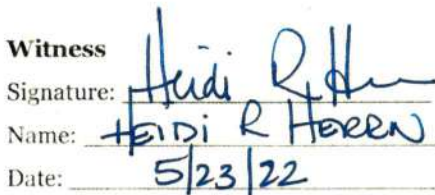 Witness
Signature: Heidi R H
Name: HEIDI R HERRN
Date: 5/23/22